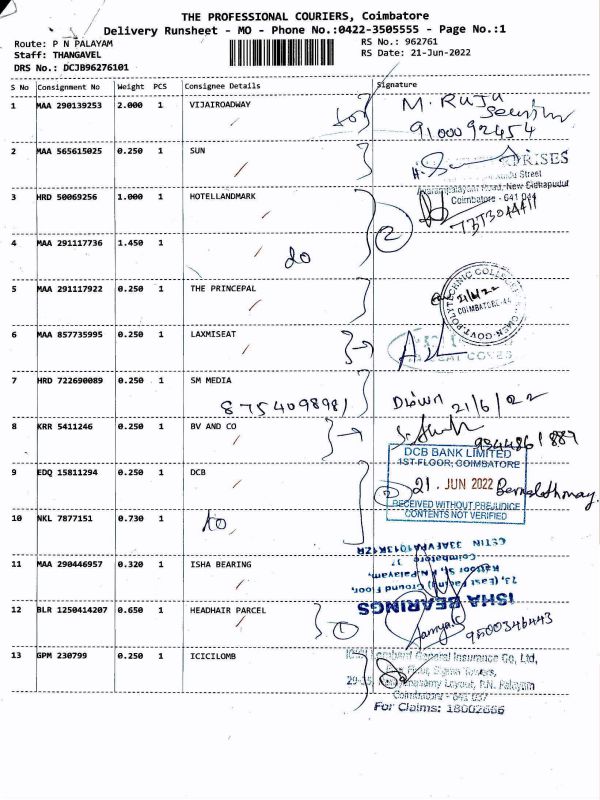 THE PROFESSIONAL COURIERS, Coimbatore
Delivery Runsheet - MO - Phone No.:0422-3505555 - Page No.:1
Route: P N PALAYAM RS No.: 962761
Staff: THANGAVEL RS Date: 21-Jun-2022
DRS No.: DCJB96276101
S No Consignment No Weight PCS Consignee Details Signature
1 MAA 290139253 2.000 1 VIJAIROADWAY
M. Raju
9100092454
2 MAA 565615025 0.250 1 SUN
RISES
Street
Road, New Sidhapudur
Coimbatore - 641 044
3 HRD 50069256 1.000 1 HOTELLANDMARK
2
4 MAA 291117736 1.450 1
do
5 MAA 291117922 0.250 1 THE PRINCEPAL
21/6/22
COIMBATORE-44
6 MAA 857735995 0.250 1 LAXMISEAT
7 HRD 722690089 0.250 1 SM MEDIA
8754098981
21/6/22
8 KRR 5411246 0.250 1 BV AND CO
DCB BANK LIMITED
1ST FLOOR, COIMBATORE
9 EDQ 15811294 0.250 1 DCB
2 21. JUN 2022
RECEIVED WITHOUT PREJUDICE
CONTENTS NOT VERIFIED
10 NKL 7877151 0.730 1
do
GSTIN 33AFVPA1013K1ZR
Coimbatore 37
11 MAA 290446957 0.320 1 ISHA BEARING
73, (East Facing) Ground Floor,
ISHA BEARINGS
12 BLR 1250414207 0.650 1 HEADHAIR PARCEL
1
9500346443
13 GPM 230799 0.250 1 ICICILOMB
Lombard General Insurance Co, Ltd,
Layout, P.N. Palayam
Coimbatore - 641 037
For Claims: 18002666